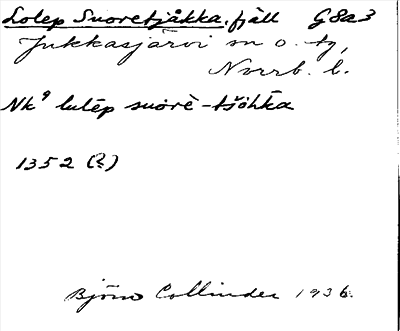 Lolep Suoretjåkka, fjäll G8a3
Jukkasjärvi sn o. tg,
Norrb. l.
Nk⁹ lulēp suorè-tšǒhka
1352 (?)
Björn Collinder 1936.